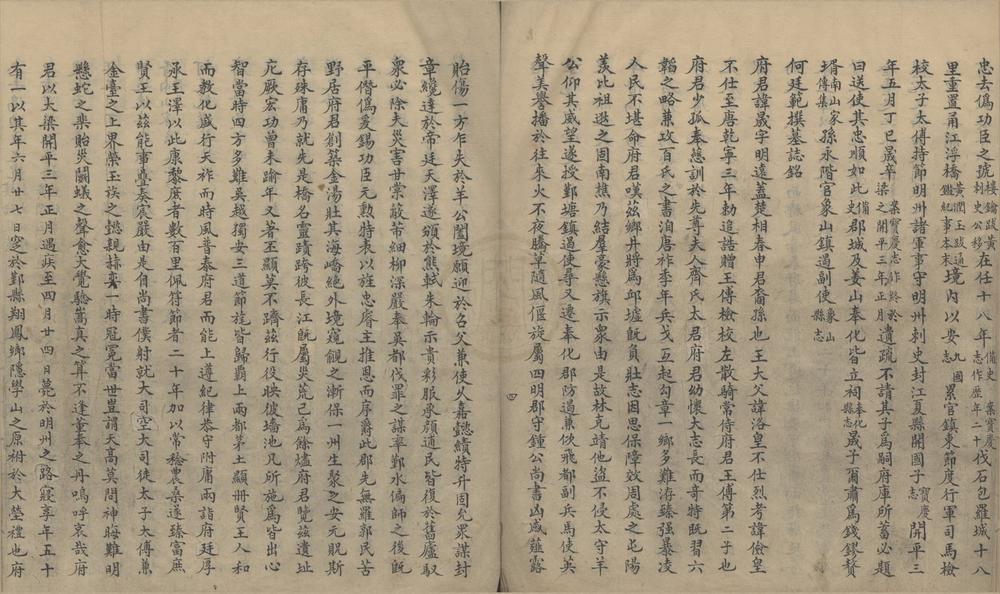 忠去僞功臣之號樓鑰跋黃刺史公移在任十八年備史 案寶慶志作歷年二十伐石包羅城十八
里重置甬江浮橋黃潤玉跋通鑑紀事本末境內以安九國志累官鎮東節度行軍司馬檢
校太子太傅持節明州諸軍事守明州刺史封江夏縣開國子寶慶志開平三
年五月丁巳晟卒案寶慶志作終於梁之開平三年正月遺疏不請其子爲嗣府庫所蓄必題
曰送使其忠順如此備史郡城及姜山奉化皆立祠奉化縣志晟子爾肅爲錢鏐贅
壻南山家傳集孫永階官象山鎮遏副使象山縣志
何廷範撰墓誌銘
府君諱晟字明遠蓋楚相春申君裔孫也王大父諱洛皇不仕烈考諱儉皇
不仕至唐乾寧三年勅追誥贈王傅檢校左散騎常侍府君王傅第二子也
府君少孤奉慈訓於先尊夫人齊氏太君府君幼懷大志長而奇特旣習六
韜之略兼攻百氏之書洎唐祚季年兵戈互起勾章一鄉多難洊臻強暴凌
人民不堪命府君嘆茲鄉井將爲邱墟旣負壯志固思保障效周處之屯陽
羨比祖逖之固南樵乃結羣豪懸旗示衆由是故林克靖他盜不侵太守羊
公仰其威望遂授鄞塘鎮遏使尋又遷奉化郡防遏兼佽飛都副兵馬使英
聲美譽播於往來火不夜驚草隨風偃旋屬四明郡守鍾公尚書凶咸薤露
四
貽傷一方乍失於羊公闔境願迎於召父兼使久嘉懿績特升固允衆謀封
章纔達於帝廷天澤遂頒於熊軾朱輪示貴彩服承顔通民皆復於舊廬馭
衆必除夫災害甘棠蔽芾細柳深嚴奉吳都伐罪之謀率鄞水偏師之後旣
平僭僞爰錫功臣元勲特表以旌忠睿主推恩而序爵此郡先無羅郭民苦
野居府君創築金湯壯其海嶠絕外境窺覦之漸保一州生聚之安元貺斯
存殊庸乃就先是橋名靈蹟跨彼長江旣屬災荒已爲餘燼府君覽茲遺址
庀厥宏功曾未踰年又著丕顯莫不躋茲行役映彼墻池凡所施爲皆出心
智當時四方多難吳越獨安三道節旄皆歸霸上兩都茅土顯冊賢王人和
而教化盛行天祚而時風普泰府君而能上遵紀律恭守附庸兩詣府廷厚
承王澤以此康黎庶者數百里佩符節者二十年加以常稔農桑遂臻富庶
賢王以茲能事疊奏宸嚴由是自尚書僕射就大司空大司徒太子太傅兼
金臺之上界榮王詖之懿親抹奕一時冠冕當世豈謂天高莫問神晦難明
懸蛇之祟貽災鬪蟻之聲愈大覺騐嵩真之算不逢董奉之丹嗚呼哀哉府
君以大梁開平三年正月遇疾至四月廿四日薨於明州之路寢享年五十
有一以其年六月廿七日窆於鄞縣翔鳳鄉隱學山之原祔於大塋禮也府